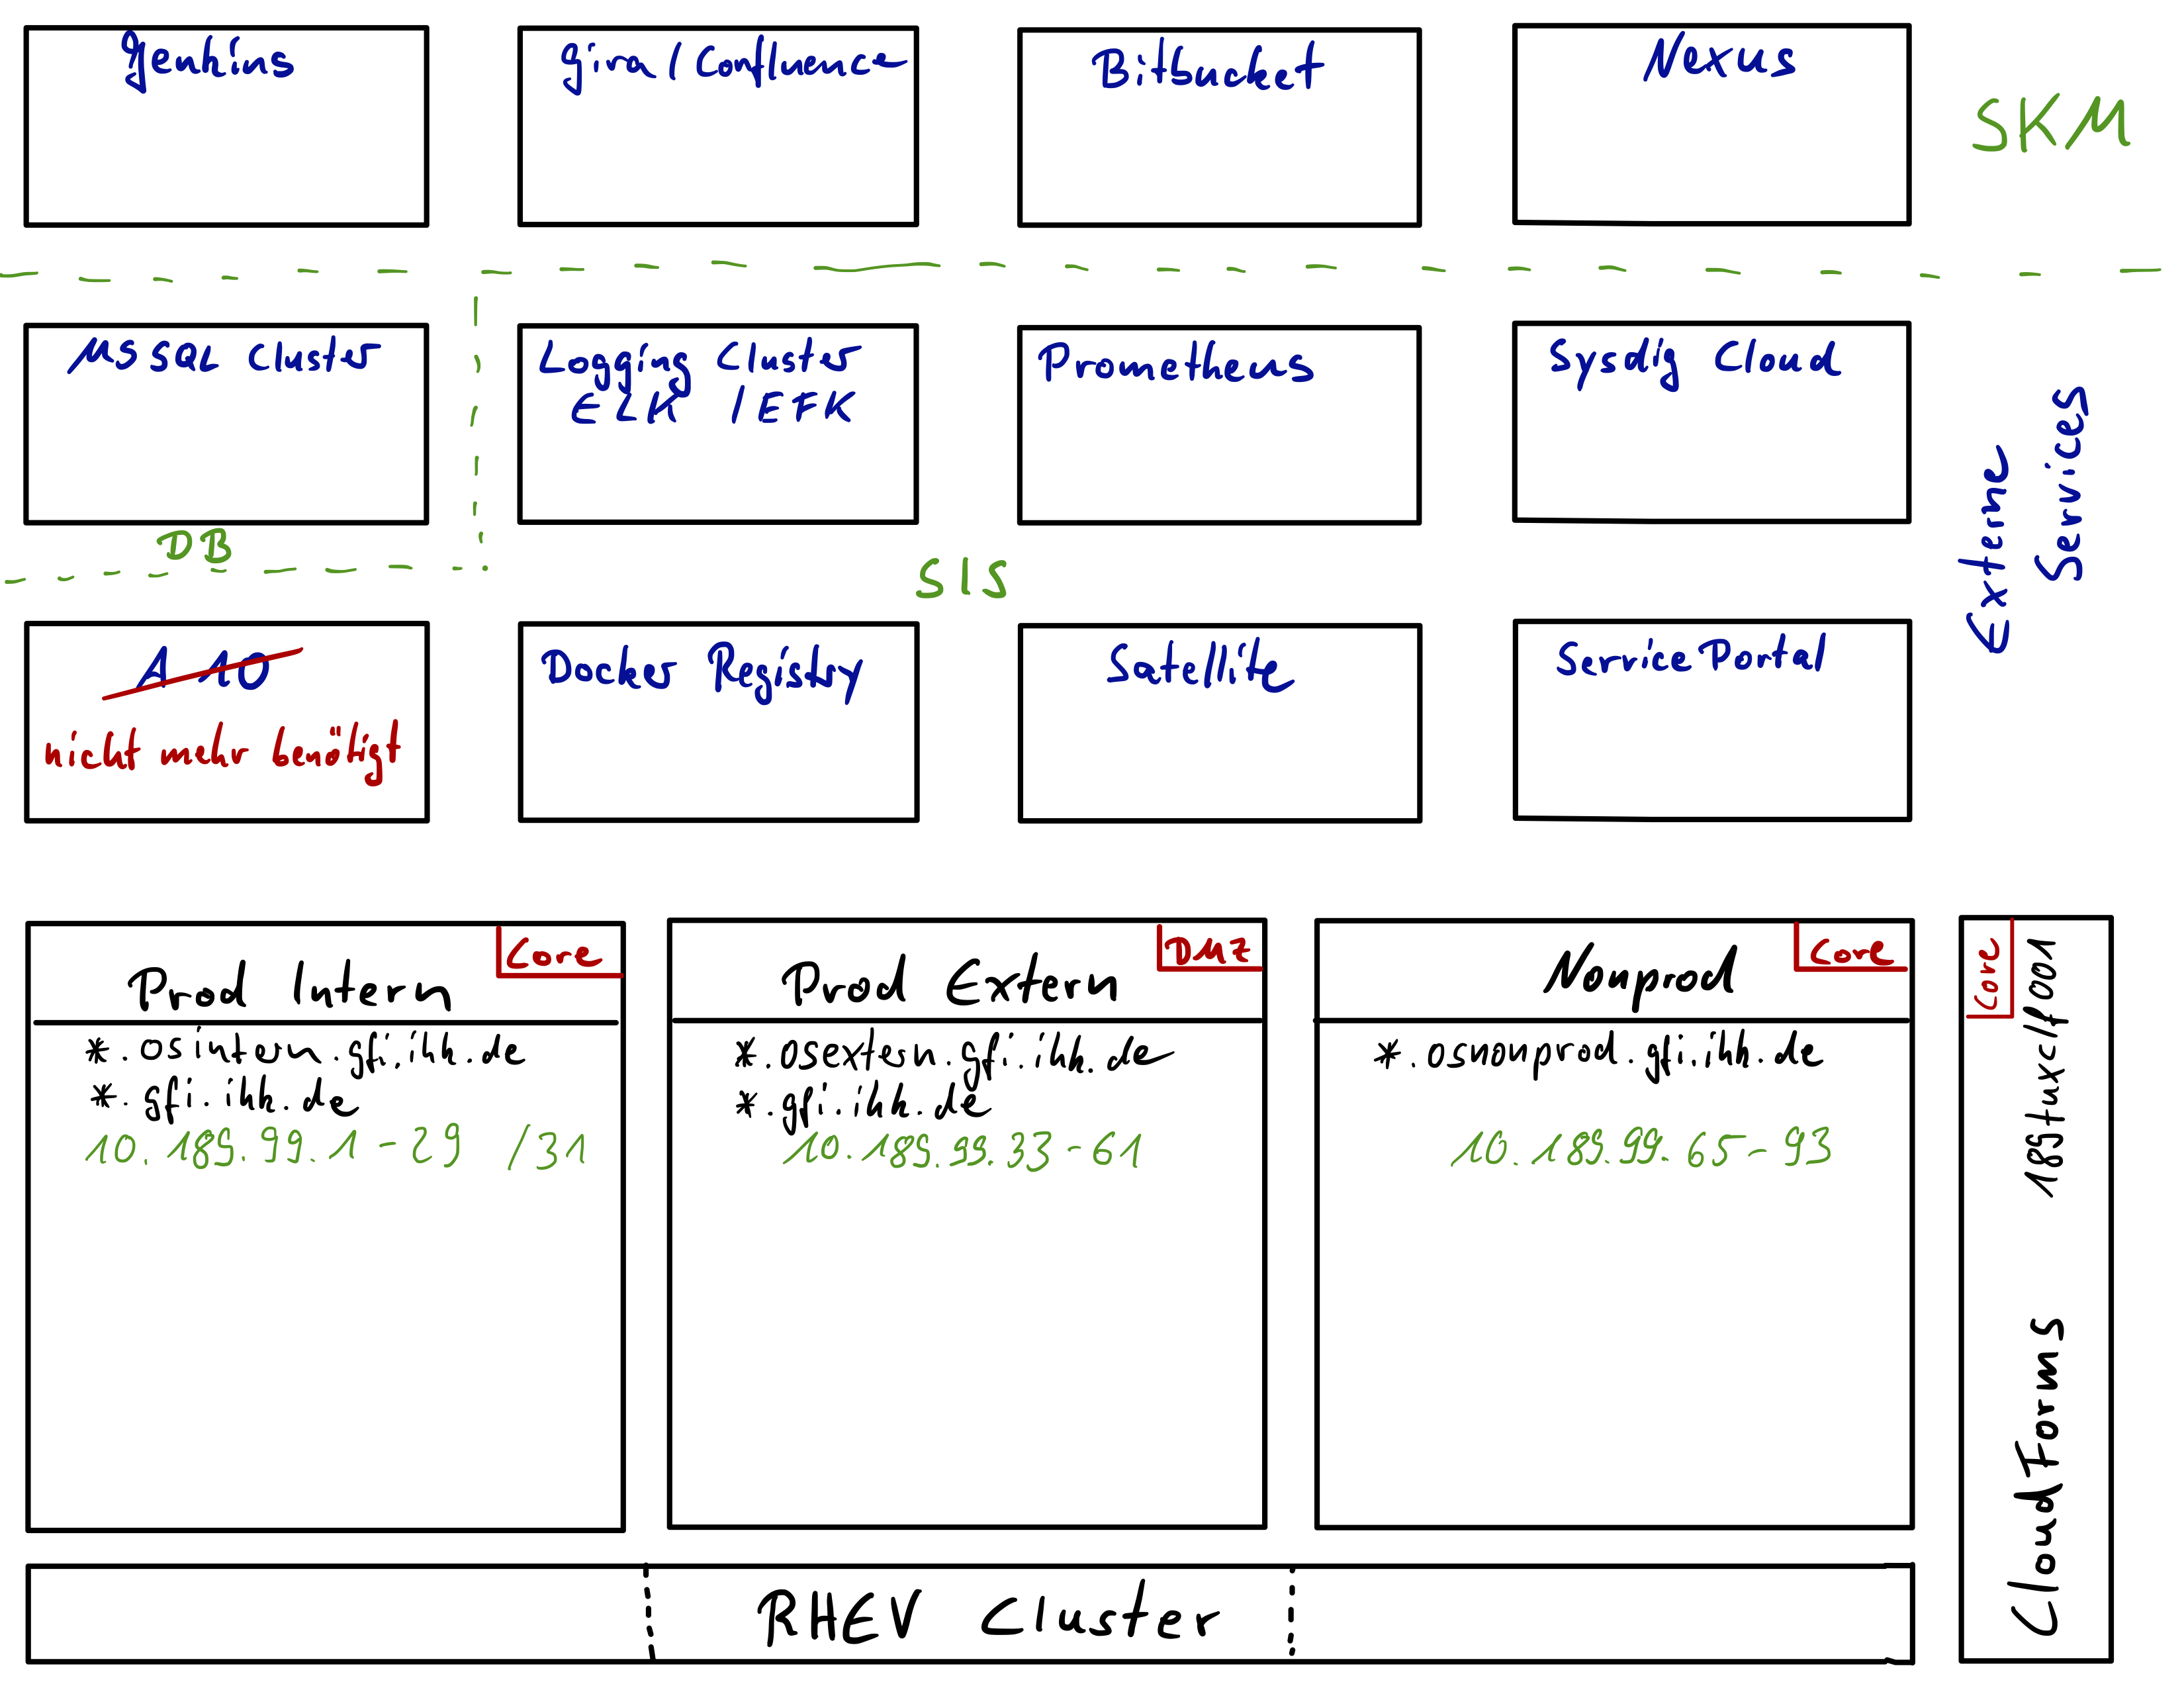 Jenkins
Jira / Confluence
Bitbucket
Nexus
SKM
MSSQL Cluster
Logging Cluster
ELK / EFK
Prometheus
Sysdig Cloud
Externe
Services
DB
SIS
A10
nicht mehr benötigt
Docker Registry
Satellite
Service Portal
Core
Prod Intern
*.osintern.gfi.ihk.de
*.gfi.ihk.de
10.189.99.1-29 /31
DMZ
Prod Extern
*.osextern.gfi.ihk.de
*.gfi.ihk.de
10.189.99.33-61
Core
Nonprod
*.osnonprod.gfi.ihk.de
10.189.99.65-93
Core
CloudForms
RHEV Cluster